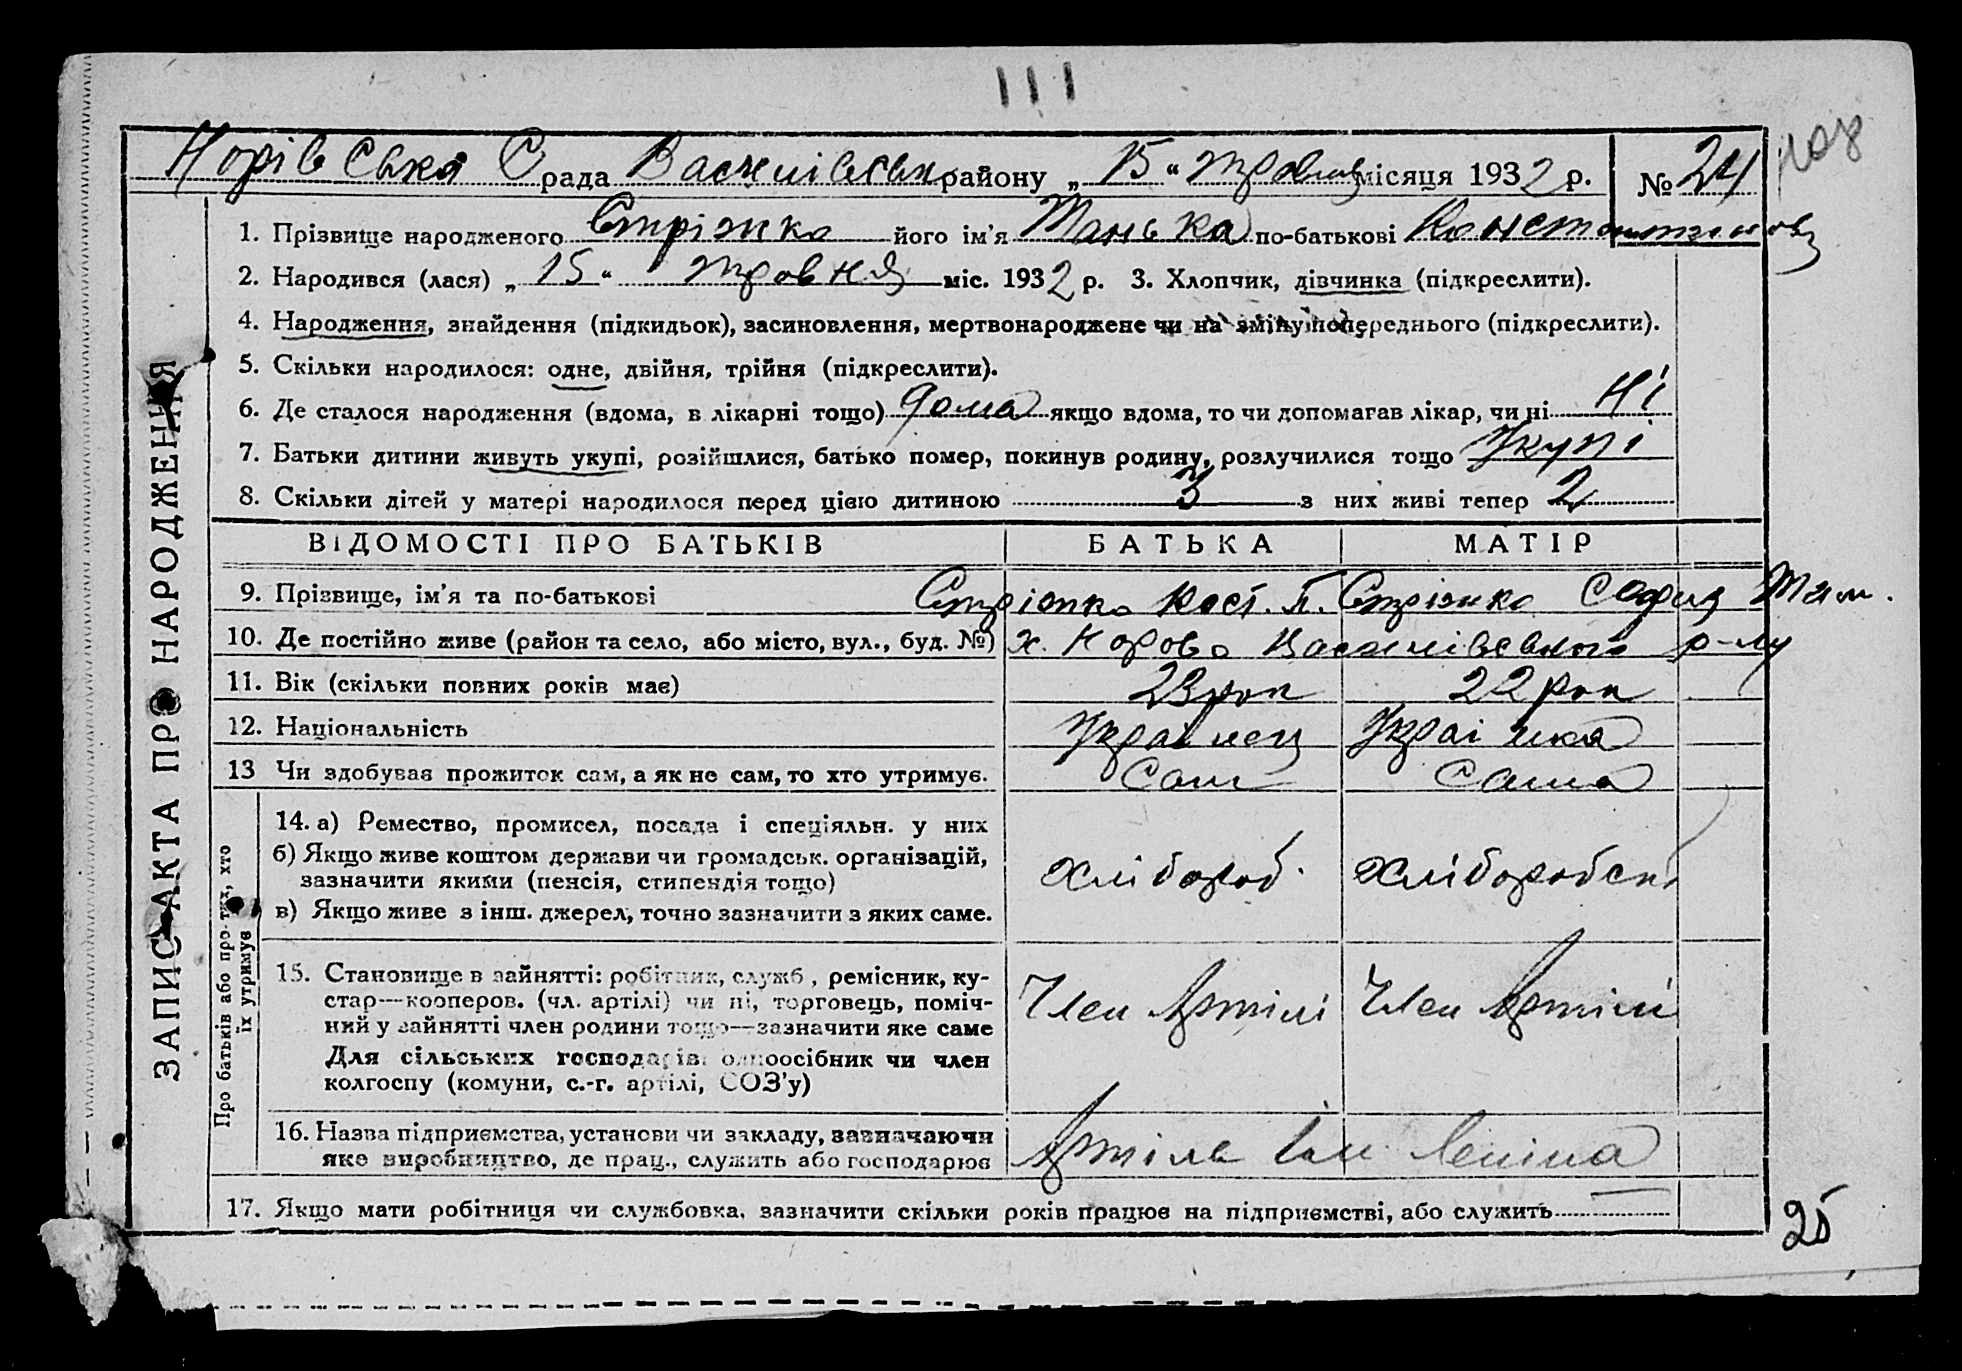 111
Норівська С рада Василівськ району „ 15 “ травня місяця 1932 р. № 24
1. Прізвище народженого Стріжко його ім'я Манька по-батькові Константинов
2. Народився (лася) „ 15 “ травня міс. 1932 р. 3. Хлопчик, дівчинка (підкреслити).
4. Народження, знайдення (підкидьок), засиновлення, мертвонароджене чи на зміну попереднього (підкреслити).
5. Скільки народилося: одне, двійня, трійня (підкреслити).
6. Де сталося народження (вдома, в лікарні тощо) дома якщо вдома, то чи допомагав лікар, чи ні Ні
7. Батьки дитини живуть укупі, розійшлися, батько помер, покинув родину, розлучилися тощо Укупі
8. Скільки дітей у матері народилося перед цією дитиною 3 з них живі тепер 2
ЗАПИС АКТА ПРО НАРОДЖЕННЯ
ВІДОМОСТІ ПРО БАТЬКІВ БАТЬКА МАТІР
9. Прізвище, ім'я та по-батькові Стріжко Кост. П. Стріжко Софія
10. Де постійно живе (район та село, або місто, вул., буд. №) х. Норово Василівського р-ну
11. Вік (скільки повних років має) 23 рок 22 рок
12. Національність Українец Українка
13 Чи здобував прожиток сам, а як не сам, то хто утримує. Сам Сама
Про батьків або про тих, хто їх утримує
14. а) Ремество, промисел, посада і спеціяльн. у них
б) Якщо живе коштом держави чи громадськ. організацій,
зазначити якими (пенсія, стипендія тощо) хлібороб. хліборобська
в) Якщо живе з інш. джерел, точно зазначити з яких саме.
15. Становище в зайнятті: робітник, служб., ремісник, ку-
стар—кооперов. (чл. артілі) чи ні, торговець, поміч- Член Артілі Член Артілі
ний у зайнятті член родини тощо—зазначити яке саме
Для сільських господарів: одноосібник чи член
колгоспу (комуни, с.-г. артілі, СОЗ'у)
16. Назва підприємства, установи чи закладу, зазначаючи
яке виробництво, де прац., служить або господарює Артіль Ім Леніна
17. Якщо мати робітниця чи службовка, зазначити скільки років працює на підприємстві, або служить —
25